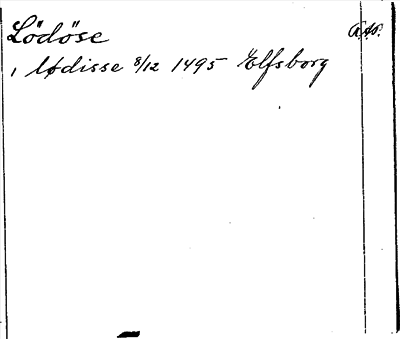 Lödöse
i lødisse 8/12 1495 Elfsborg